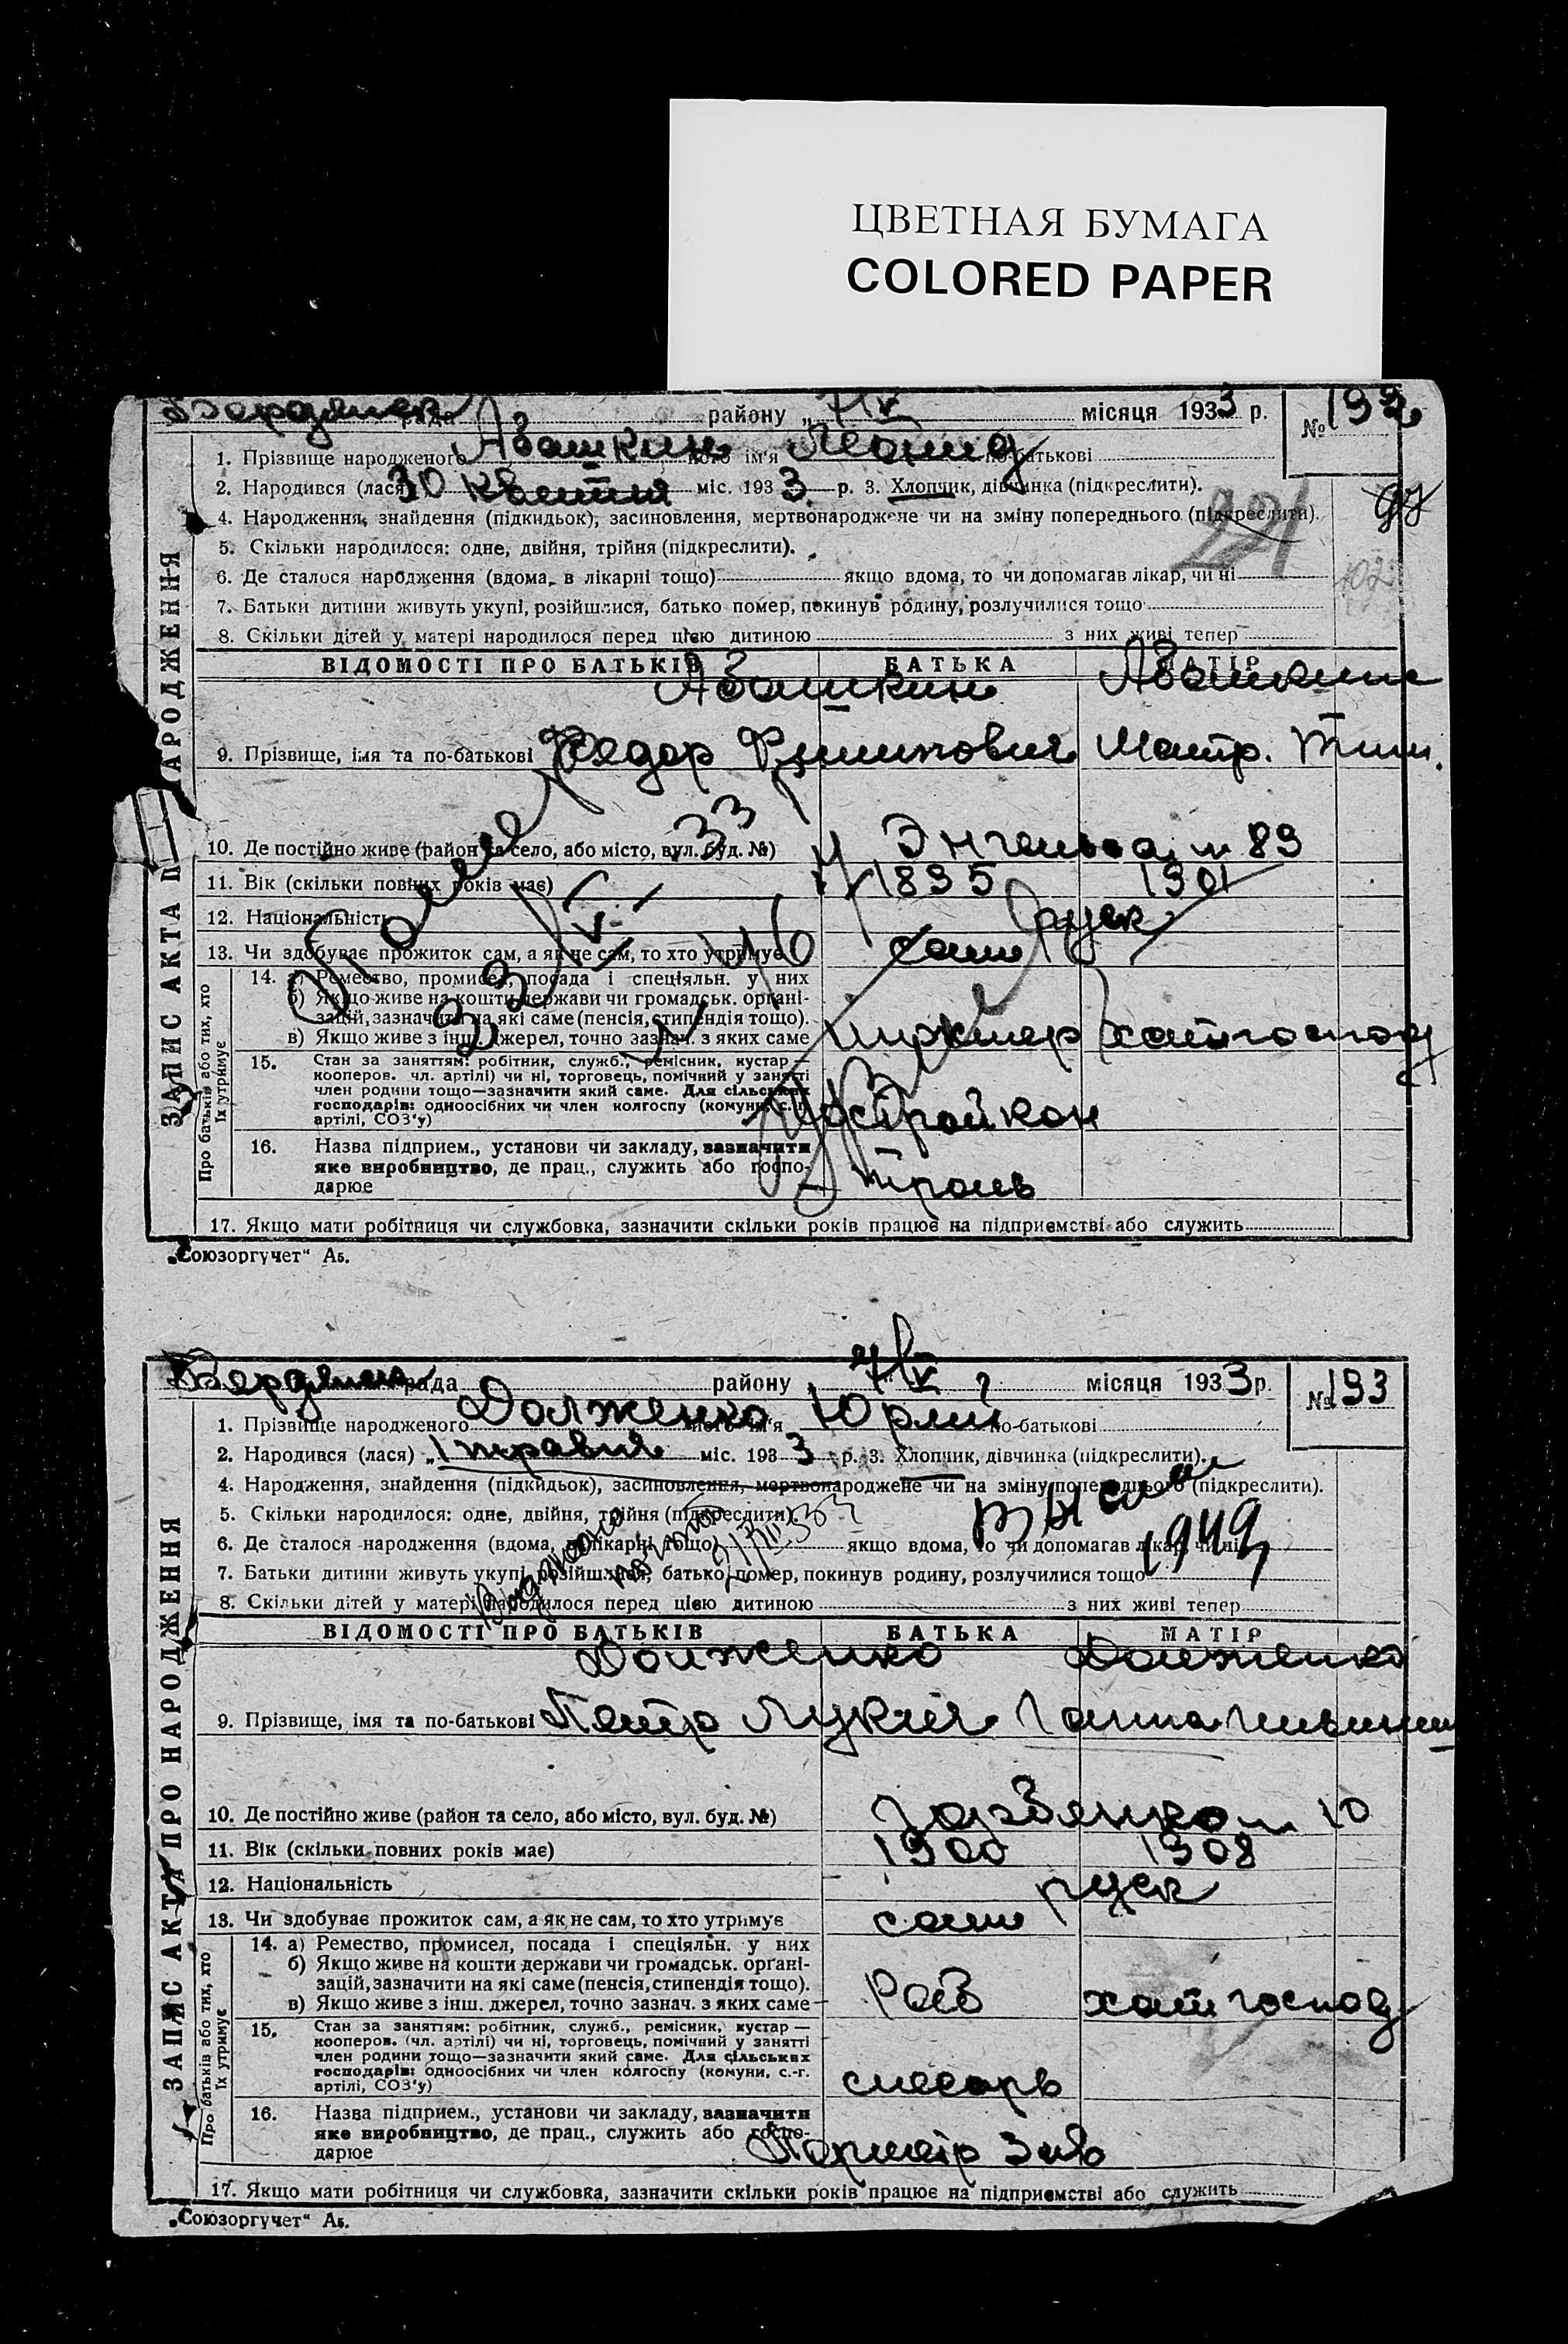 ЦВЕТНАЯ БУМАГА
COLORED PAPER
Бердянск рада району „ 7/V місяця 1933 р. № 192
1. Прізвище народженого Авашкин його ім'я Леонид по-батькові
2. Народився (лася) 30 Квітня міс. 1933 р. 3. Хлопчик, дівчинка (підкреслити).
97
4. Народження, знайдення (підкидьок), засиновлення, мертвонароджене чи на зміну попереднього (підкреслити).
221
5. Скільки народилося: одне, двійня, трійня (підкреслити).
6. Де сталося народження (вдома, в лікарні тощо) якщо вдома, то чи допомагав лікар, чи ні
102
7. Батьки дитини живуть укупі, розійшлися, батько помер, покинув родину, розлучилися тощо
8. Скільки дітей у матері народилося перед цією дитиною з них живі тепер
ВІДОМОСТІ ПРО БАТЬКІВ БАТЬКА МАТІР
Авашкин Авашкина
9. Прізвище, імя та по-батькові Федор
10. Де постійно живе (район та село, або місто, вул. буд. №) Энгельса 89
11. Вік (скільки повних років має) 1895 1901
12. Національність руск
13. Чи здобуває прожиток сам, а як не сам, то хто утримує сам
14. а) Ремество, промисел, посада і спеціяльн. у них
б) Якщо живе на кошти держави чи громадськ. органі-
зацій, зазначити на які саме (пенсія, стипендія тощо).
в) Якщо живе з інш. джерел, точно зазнач. з яких саме хатгоспод
15. Стан за заняттям: робітник, служб., ремісник, кустар —
кооперов. чл. артілі) чи ні, торговець, помічний у занятті
член родини тощо—зазначити який саме. Для сільських
господарів: одноосібних чи член колгоспу (комуни, с.-г.
артілі, СОЗ'у)
16. Назва підприєм., установи чи закладу, зазначити
яке виробництво, де прац., служить або госпо-
дарює
17. Якщо мати робітниця чи службовка, зазначити скільки років працює на підприємстві або служить
ЗАПИС АКТА ПРО НАРОДЖЕННЯ
Про батьків або тих, хто їх утримує
„Союзоргучет“ Аб.
Бердянск рада району 7/V місяця 1933 р. № 193
1. Прізвище народженого Долженко його ім'я Юрлий по-батькові
2. Народився (лася) „1 травня міс. 1933 р. 3. Хлопчик, дівчинка (підкреслити).
4. Народження, знайдення (підкидьок), засиновлення, мертвонароджене чи на зміну попереднього (підкреслити).
5. Скільки народилося: одне, двійня, трійня (підкреслити).
6. Де сталося народження (вдома, в лікарні тощо) якщо вдома, то чи допомагав лікар, чи ні
1949
7. Батьки дитини живуть укупі, розійшлися, батько помер, покинув родину, розлучилися тощо
8. Скільки дітей у матері народилося перед цією дитиною з них живі тепер
ВІДОМОСТІ ПРО БАТЬКІВ БАТЬКА МАТІР
Долженко Долженко
9. Прізвище, імя та по-батькові Петр Лукич Ганна
10. Де постійно живе (район та село, або місто, вул. буд. №) 10
11. Вік (скільки повних років має) 1900 1908
12. Національність руск
13. Чи здобуває прожиток сам, а як не сам, то хто утримує сам
14. а) Ремество, промисел, посада і спеціяльн. у них
б) Якщо живе на кошти держави чи громадськ. органі-
зацій, зазначити на які саме (пенсія, стипендія тощо).
в) Якщо живе з інш. джерел, точно зазнач. з яких саме Роб хатгоспод
15. Стан за заняттям: робітник, служб., ремісник, кустар —
кооперов. (чл. артілі) чи ні, торговець, помічний у занятті
член родини тощо—зазначити який саме. Для сільських
господарів: одноосібних чи член колгоспу (комуни, с.-г.
артілі, СОЗ'у) слесарь
16. Назва підприєм., установи чи закладу, зазначити
яке виробництво, де прац., служить або госпо-
дарює
17. Якщо мати робітниця чи службовка, зазначити скільки років працює на підприємстві або служить
ЗАПИС АКТА ПРО НАРОДЖЕННЯ
Про батьків або тих, хто їх утримує
„Союзоргучет“ Аб.